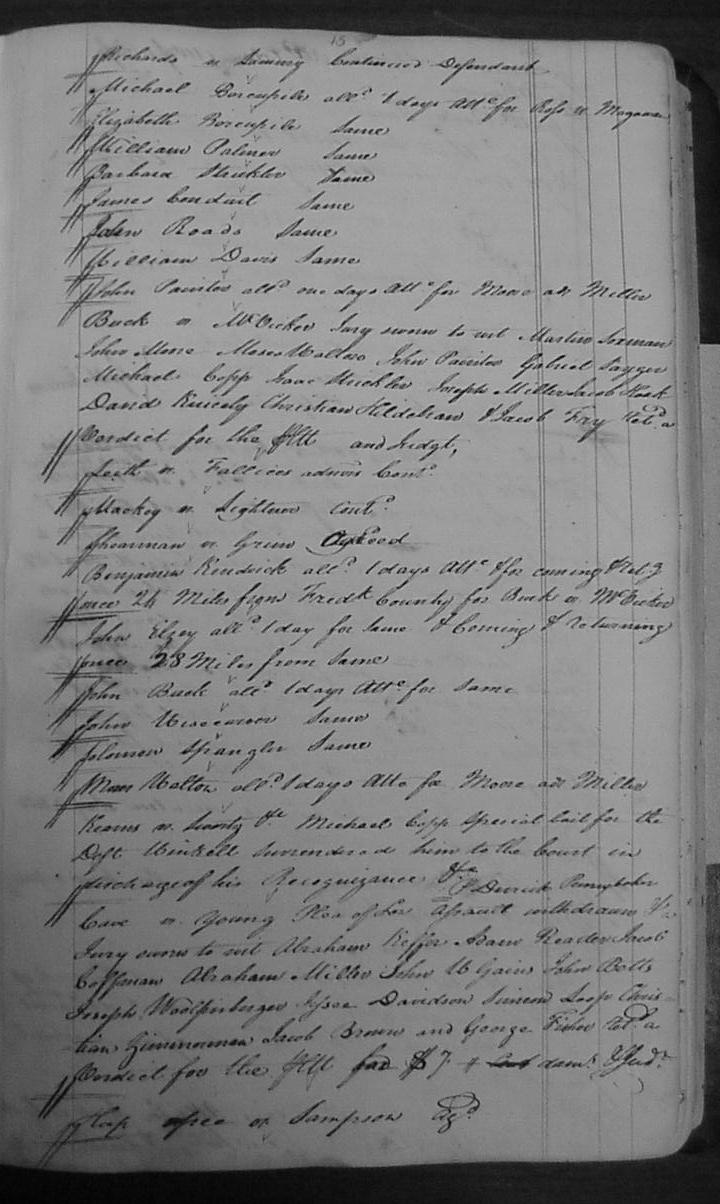 15
Richards vs Continued Defendant
Michael Borenpile alld 1 days Attce for Ross vs Magowan
Elizabeth Borenpile Same
William Palmer Same
Barbara Strickler Same
James Conduit Same
John Roads Same
William Davis Same
John Painter alld one days Attce for Moore ads Miller
Buck vs McVicker Jury sworn to wit Martin
John Moore Moses Walton John Painter Gabriel Sagger
Michael Copp Isaac Strickler Joseph Miller Jacob
David Christian Hildebran & Jacob Fry Retd a
Verdict for the Plt and Judgt,
Leith vs adm Contd
Mackey vs Lightner Contd
Shearman vs Green Agreed
Benjamin Kendrick alld 1 days Attce & for coming & Retg
once 24 Miles from Fredk County for Buck vs McVicker
John Elzey alld 1 day for same & Coming & returning
once 28 Miles from Same
John Buck alld 1 days Attce for Same
John Same
Solomon Spangler Same
Moses Walton alld 1 days Atta for Moore ads Miller
Kearns vs &c Michael Copp Special bail for the
Deft surrendered him to the Court in
discharge of his Recognizance &ce Derrick Pennybaker
Cave vs Young Plea of Assault withdrawn & a
Jury sworn to wit Abraham Keffer Adam Reader Jacob
Coffman Abraham Miller John W Gains John Botts
Joseph Woolfenberger Jesse Davidson Simeon Loop Chris-
tian Zimmerman Jacob Brown and George Fisher Retd a
Verdict for the Plt for $7 dams & Judt
vs Sampson Agd